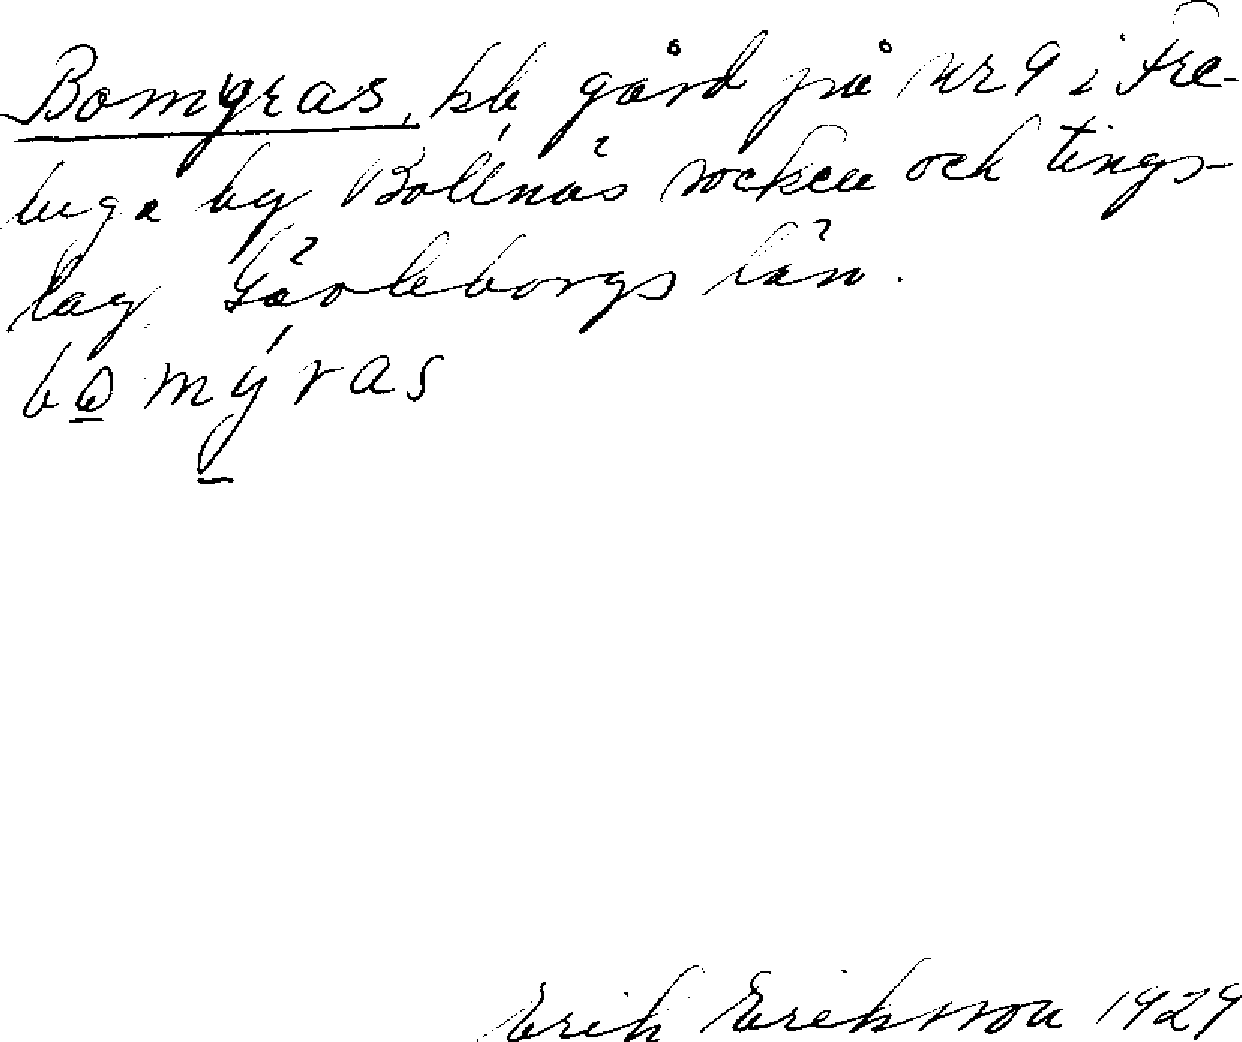 Bomyras, kb gård på nr 9 i Fre-
luga by Bollnäs socken och tings-
lag. Gävleborgs län.
bomýras
Erik Eriksson 1929